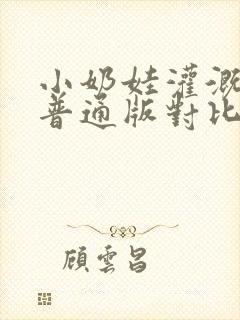 小奶娃灌溉
普通版對比
顧雲昌